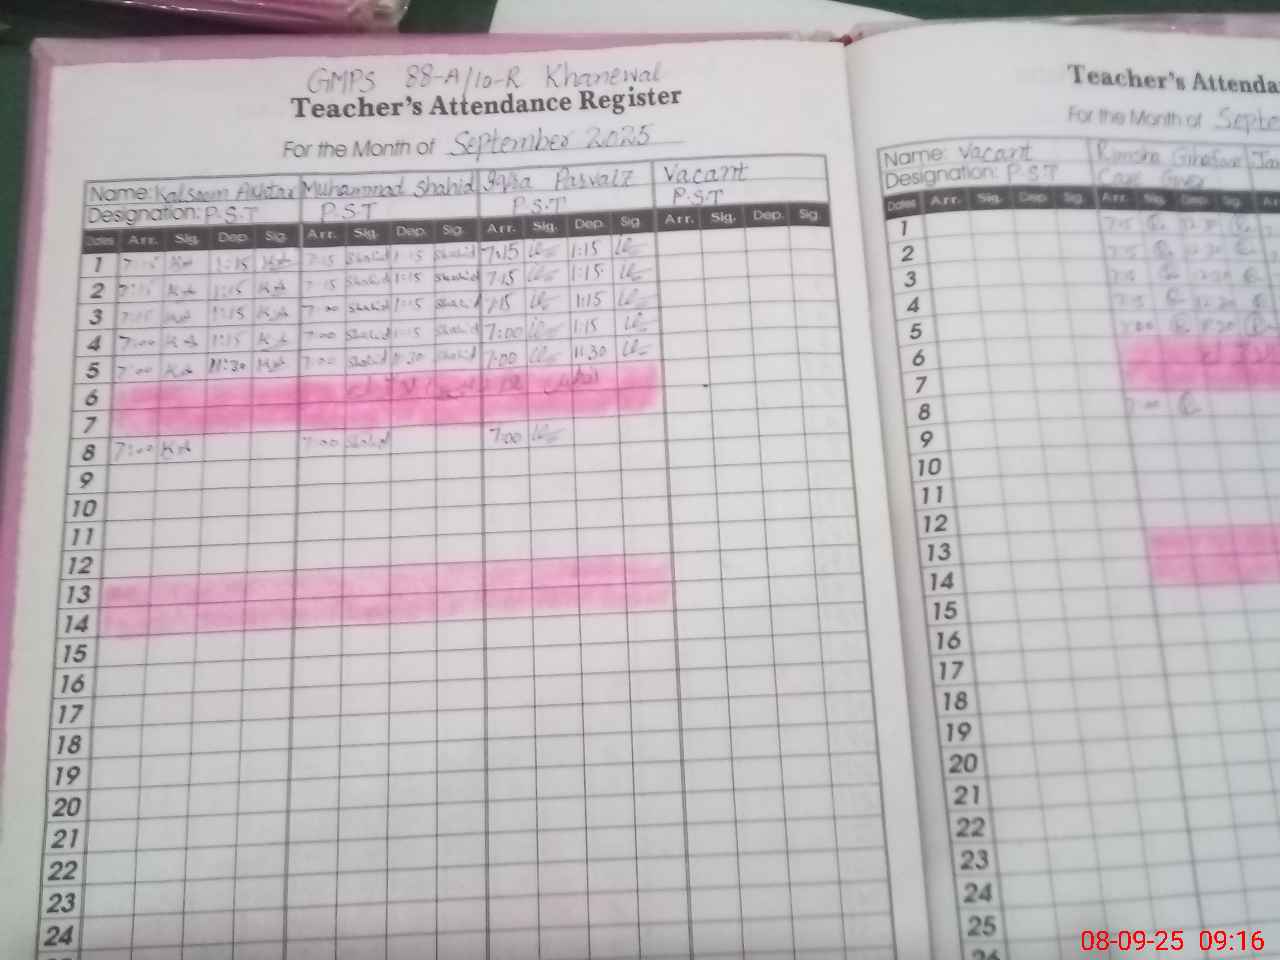 GMPS 88-A/10-R Khanewal
Teacher's Attendance Register
For the Month of September 2025
Name: Kalsoom Akhtar Muhammad Shahid Iqra Parvaiz Vacant
Designation: P.S.T P.S.T P.S.T P.S.T
Dates Arr. Sig. Dep. Sig. Arr. Sig. Dep. Sig. Arr. Sig. Dep. Sig. Arr. Sig. Dep. Sig.
1 7:15 KA 1:15 KA 7:15 Shahid 1:15 Shahid 7:15 1:15
2 7:15 KA 1:15 KA 7:15 Shahid 1:15 Shahid 7:15 1:15
3 7:15 KA 1:15 KA 7:00 Shahid 1:15 Shahid 7:15 1:15
4 7:00 KA 1:15 KA 7:00 Shahid 1:15 Shahid 7:00 1:15
5 7:00 KA 11:30 KA 7:00 Shahid 11:30 Shahid 7:00 11:30
6
7
8 7:00 KA 7:00 Shahid 7:00
9
10
11
12
13
14
15
16
17
18
19
20
21
22
23
24
Teacher's Attenda
For the Month of Septe
Name: Vacant Rimsha
Designation: P.S.T Care Giver
Dates Arr. Sig. Dep. Sig. Arr. Sig. Dep. Sig.
1 7:15 12:30
2 7:15 12:30
3 7:15 12:30
4 7:15 12:30
5 7:00 11:30
6
7
8 7:00
9
10
11
12
13
14
15
16
17
18
19
20
21
22
23
24
25
26
08-09-25 09:16